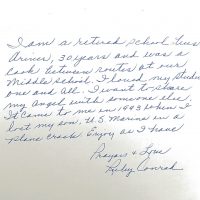 I am a retired school bus
driver, 30 years and was a
cook between routes at our
Middle school. I loved my students
one and all. I want to share
my angel with someone else.
It came to me in 1993 when I
lost my son, U.S Marine in a
plane crash Enjoy as I have
Prayers & Love
Ruby Conrad